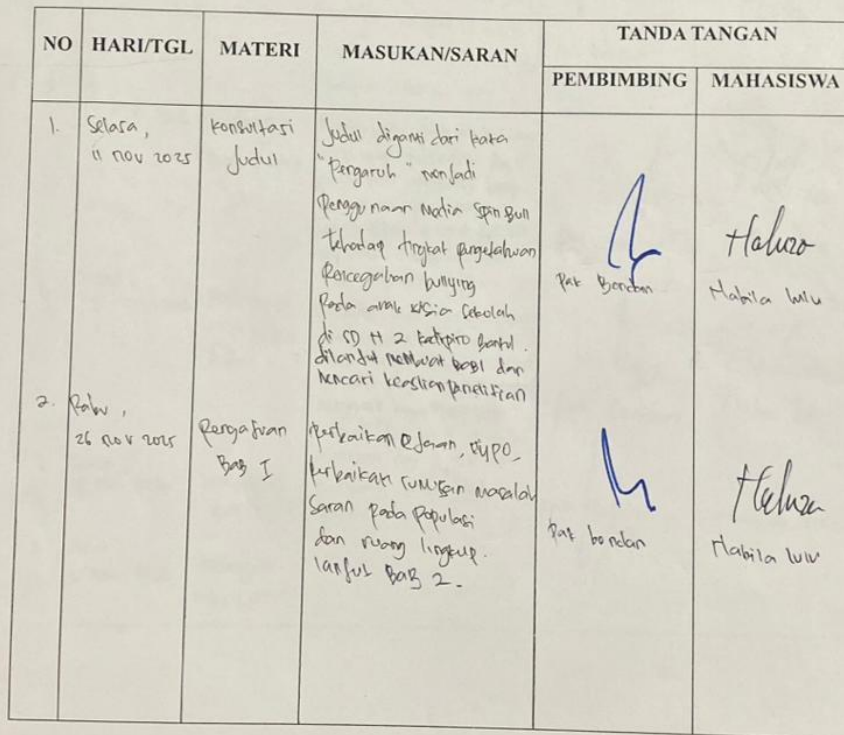 NO HARI/TGL MATERI MASUKAN/SARAN TANDA TANGAN
PEMBIMBING MAHASISWA
1.
Selasa,
11 nov 2025
Konsultasi
Judul
Judul diganti dari kata
"Pengaruh" menjadi
Penggunaan Media Spin Bull
tehadap tingkat pengetahuan
Pencegahan bullying
Pada anak usia Sekolah
di SD N 2 Bantul.
dilanjut membuat BAB1 dan
Mencari keaslian penelitian
Pak Bondan
Nabila lulu
2.
Rabu,
26 nov 2025
Pengajuan
BAB I
Perbaikan ejaan, typo,
Perbaikan rumusan masalah
Saran pada populasi
dan ruang lingkup.
lanjut BAB 2.
pak bondan
Nabila lulu